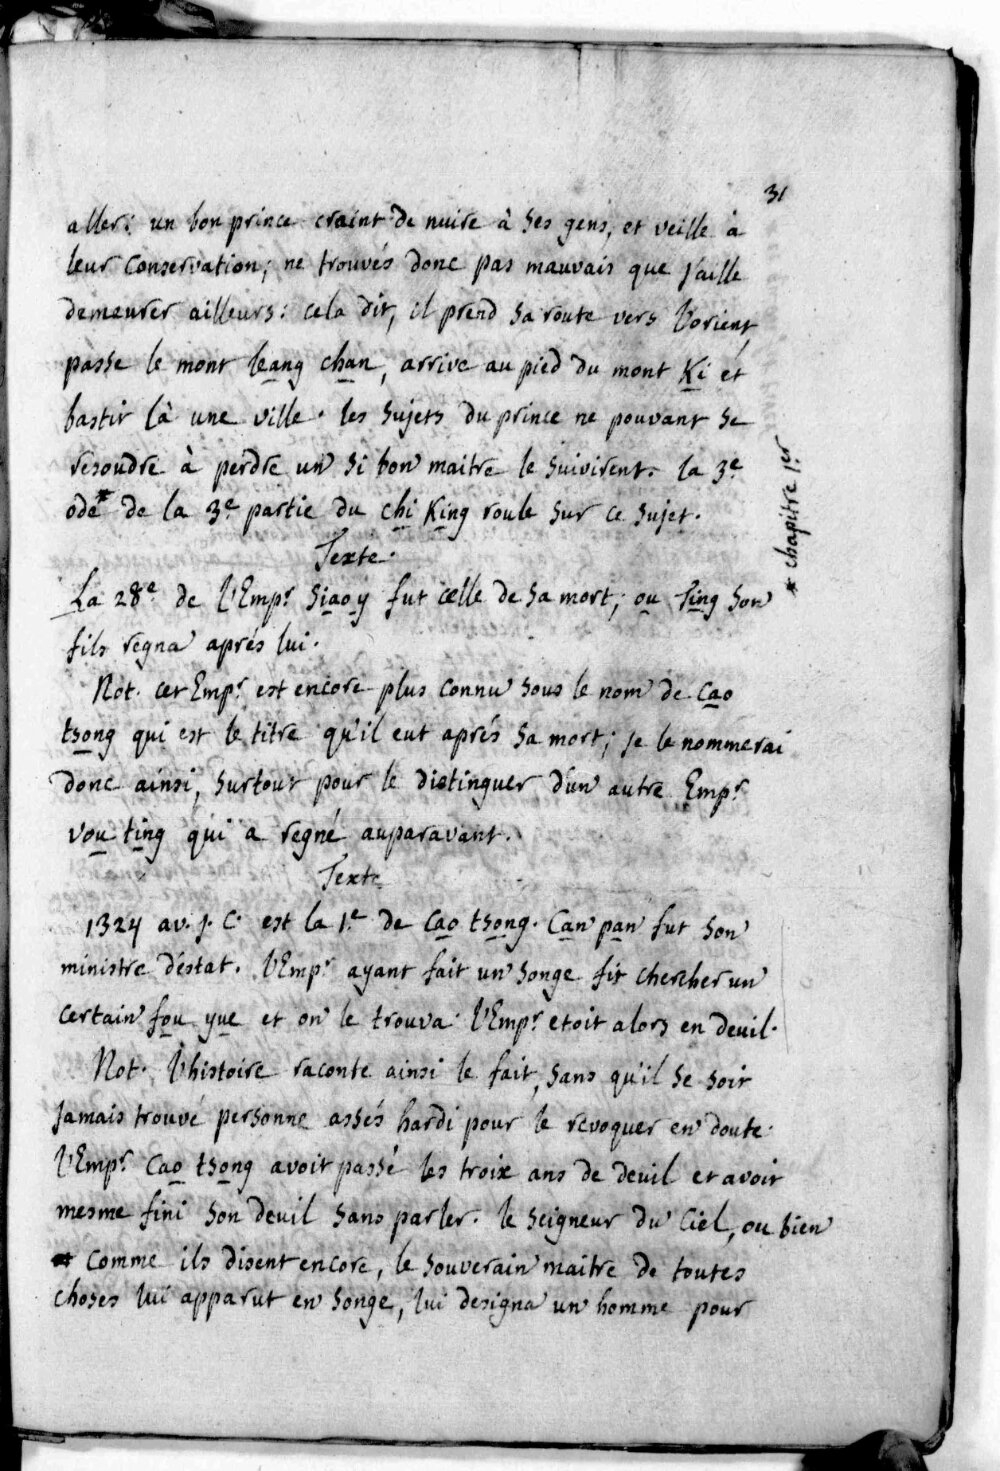 31
aller: un bon prince craint de nuire à ses gens, et veille à
leur conservation; ne trouvés donc pas mauvais que j'aille
demeurer ailleurs: cela dit, il prend sa route vers l'orient,
passe le mont leang chan, arrive au pied du mont Ki et
bastir là une ville. les sujets du prince ne pouvant se
resoudre à perdre un si bon maitre le suivirent. la 3e
ode* de la 3e partie du chi King roule sur ce sujet.
* chapitre 1er
Texte.
La 28e de l'Empr Siao y fut celle de sa mort; ou Ting son
fils regna aprés lui.
Not. cet Empr est encore plus connu sous le nom de Cao
tsong qui est le titre qu'il eut aprés sa mort; je le nommerai
donc ainsi, surtout pour le distinguer d'un autre Empr
vou ting qui a regné auparavant.
Texte
1324 av. J. C. est la 1e de Cao tsong. Can pan fut son
ministre d'éstat. l'Empr ayant fait un songe fit chercher un
certain fou yue et on le trouva. l'Empr etoit alors en deuil.
Not. l'histoire raconte ainsi le fait, sans qu'il se soit
jamais trouvé personne assés hardi pour le revoquer en doute.
l'Empr Cao tsong avoit passé les troix ans de deuil et avoit
mesme fini son deuil sans parler. le seigneur du Ciel, ou bien
comme ils disent encore, le souverain maitre de toutes
choses lui apparut en songe, lui designa un homme pour